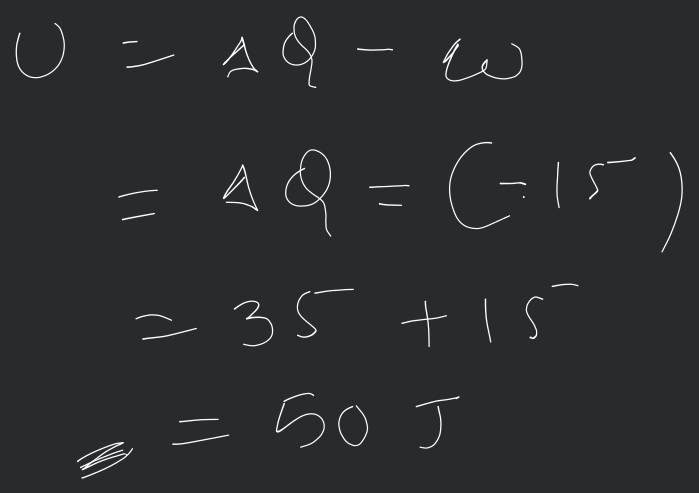 U = ΔQ - w
= ΔQ = (-15)
= 35 + 15
= 50 J